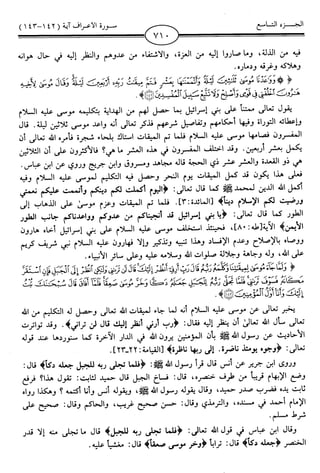 الجـزء التـاسـع
سـورة الأعـراف آية (١٤٢-١٤٣)
٧١٠
فيه من الذلة، وما صاروا إليه من العزة، والاشتفاء من عدوهم والنظر إليه في حال هوانه
وهلاكه وغرقه ودماره.
وَوَٰعَدْنَا مُوسَىٰ ثَلَٰثِينَ لَيْلَةً وَأَتْمَمْنَٰهَا بِعَشْرٍ فَتَمَّ مِيقَٰتُ رَبِّهِ أَرْبَعِينَ لَيْلَةً وَقَالَ مُوسَىٰ لِأَخِيهِ
هَٰرُونَ ٱخْلُفْنِى فِى قَوْمِى وَأَصْلِحْ وَلَا تَتَّبِعْ سَبِيلَ ٱلْمُفْسِدِينَ
يقول تعالى ممتناً على بني إسرائيل بما حصل لهم من الهداية بتكليمه موسى عليه السلام
وإعطائه التوراة وفيها أحكامهم وتفاصيل شرعهم فذكر تعالى أنه واعد موسى ثلاثين ليلة. قال
المفسرون فصامها موسى عليه السلام فلما تم الميقات استاك بلحاء شجرة فأمره الله تعالى أن
يكمل بعشر أربعين. وقد اختلف المفسرون في هذه العشر ما هي؟ فالأكثرون على أن الثلاثين
هي ذو القعدة والعشر عشر ذي الحجة قاله مجاهد ومسروق وابن جريج وروي عن ابن عباس.
فعلى هذا يكون قد كمل الميقات يوم النحر وحصل فيه التكليم لموسى عليه السلام وفيه
أكمل الله الدين لمحمد ﷺ كما قال تعالى: ﴿اليوم أكملت لكم دينكم وأتممت عليكم نعمتي
ورضيت لكم الإسلام ديناً﴾ [المائدة:٣]. فلما تم الميقات وعزم موسى على الذهاب إلى
الطور كما قال تعالى: ﴿يا بني إسرائيل قد أنجيناكم من عدوكم وواعدناكم جانب الطور
الأيمن﴾ الآية[طه: ٨٠]، فحينئذ استخلف موسى عليه السلام على بني إسرائيل أخاه هارون
ووصاه بالإصلاح وعدم الإفساد وهذا تنبيه وتذكير وإلا فهارون عليه السلام نبي شريف كريم
على الله، وله وجاهة وجلالة صلوات الله وسلامه عليه وعلى سائر الأنبياء.
وَلَمَّا جَآءَ مُوسَىٰ لِمِيقَٰتِنَا وَكَلَّمَهُۥ رَبُّهُۥ قَالَ رَبِّ أَرِنِىٓ أَنظُرْ إِلَيْكَ قَالَ لَن تَرَىٰنِى وَلَٰكِنِ ٱنظُرْ إِلَى ٱلْجَبَلِ فَإِنِ ٱسْتَقَرَّ
مَكَانَهُۥ فَسَوْفَ تَرَىٰنِى فَلَمَّا تَجَلَّىٰ رَبُّهُۥ لِلْجَبَلِ جَعَلَهُۥ دَكًّا وَخَرَّ مُوسَىٰ صَعِقًا فَلَمَّآ أَفَاقَ قَالَ سُبْحَٰنَكَ تُبْتُ
إِلَيْكَ وَأَنَا۠ أَوَّلُ ٱلْمُؤْمِنِينَ
يخبر تعالى عن موسى عليه السلام أنه لما جاء لميقات الله تعالى وحصل له التكليم من الله
تعالى سأل الله تعالى أن ينظر إليه فقال: ﴿رب أرني أنظر إليك قال لن تراني﴾. وقد تواترت
الأحاديث عن رسول الله ﷺ بأن المؤمنين يرون الله في الدار الآخرة كما سنوردها عند قوله
تعالى: ﴿وجوه يومئذ ناضرة. إلى ربها ناظرة﴾ [القيامة:٢٢،٢٣].
وروى ابن جرير عن أنس قال قرأ رسول الله ﷺ: ﴿فلما تجلى ربه للجبل جعله دكاً﴾ قال:
وضع الإبهام قريباً من طرف خنصره، قال: فساخ الجبل قال حميد لثابت: تقول هكذا؟ فرفع
ثابت يده فضرب صدر حميد، وقال يقوله رسول الله ﷺ، ويقوله أنس وأنا أكتمه ؟ وهكذا رواه
الإمام أحمد في مسنده، والترمذي وقال: حسن صحيح غريب، والحاكم وقال: صحيح على
شرط مسلم.
وقال ابن عباس في قول الله تعالى: ﴿فلما تجلى ربه للجبل﴾ قال: ما تجلى منه إلا قدر
الخنصر ﴿جعله دكاً﴾ قال: تراباً ﴿وخر موسى صعقاً﴾ قال: مغشياً عليه.